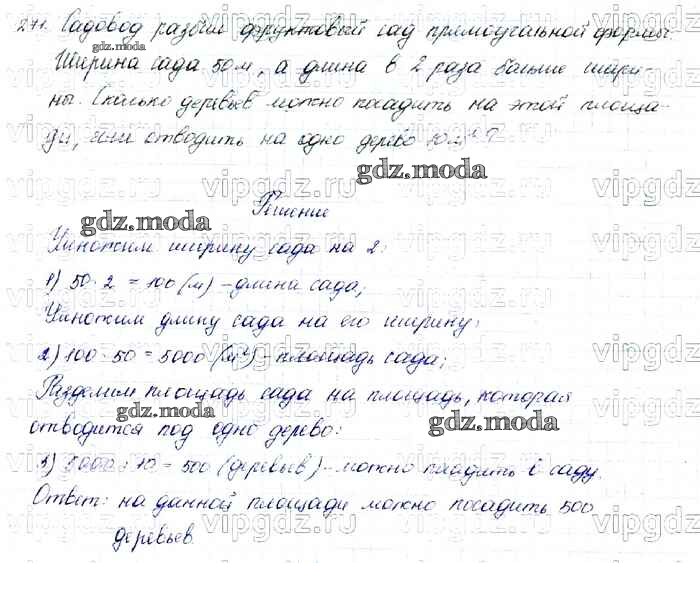 271. Садовод разбил фруктовый сад прямоугольной формы.
Ширина сада 50 м, а длина в 2 раза больше шири-
ны. Сколько деревьев можно посадить на этой площа-
ди, если отводить на одно дерево 10 м²?
Решение
Умножим ширину сада на 2:
1) 50 · 2 = 100 (м) – длина сада;
Умножим длину сада на его ширину:
2) 100 · 50 = 5000 (м²) – площадь сада;
Разделим площадь сада на площадь, которая
отводится под одно дерево:
3) 5000 : 10 = 500 (деревьев) – можно посадить в саду.
Ответ: на данной площади можно посадить 500
деревьев.
gdz.moda
gdz.moda
gdz.moda
gdz.moda
gdz.moda
vipgdz.ru